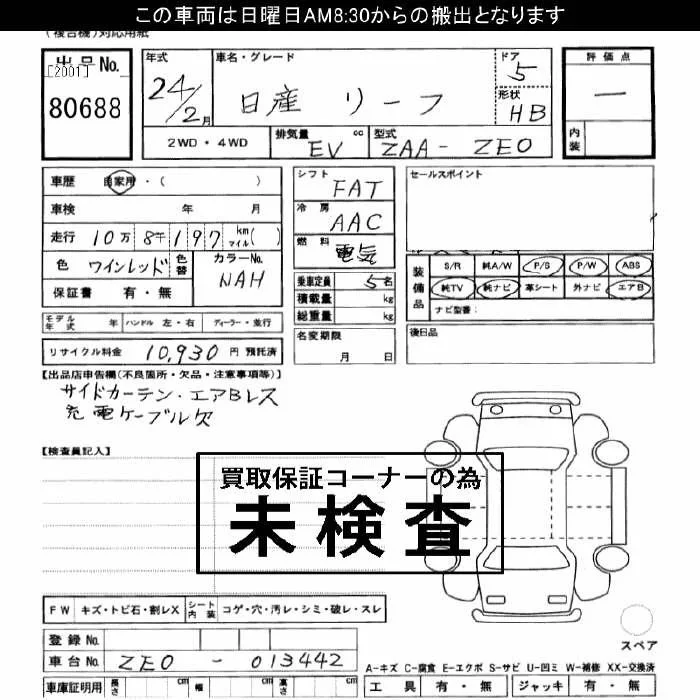 この車両は日曜日AM8:30からの搬出となります
(複合機)対応用紙
出品No. [2001] 80688
年式 24/2月
車名・グレード 日産 リーフ
ドア 5
形状 HB
評価点 —
内装
2WD・4WD
排気量 cc EV
型式 ZAA-ZE0
車歴 自家用・( )
車検 年 月
走行 10万8千197 km マイル( )
色 ワインレッド 色替 カラーNo. NAH
保証書 有・無
シフト FAT
冷房 AAC
燃料 電気
乗車定員 5名
積載量 kg
総重量 kg
名変期限 月 日
セールスポイント
装備品 S/R 純A/W P/S P/W ABS
純TV 純ナビ 革シート 外ナビ エアB
ナビ型番:
後日品
モデル年式 年 ハンドル 左・右 ディーラー・並行
リサイクル料金 10,930 円 預託済
【出品店申告欄(不良箇所・欠品・注意事項等)】
サイドカーテン・エアBレス
充電ケーブル欠
【検査員記入】
買取保証コーナーの為
未検査
FW キズ・トビ石・割レX シート内装 コゲ・穴・汚レ・シミ・破レ・スレ
登録No.
車台No. ZE0-013442
スペア
A-キズ C-腐食 E-エクボ S-サビ U-凹ミ W-補修 XX-交換済
車庫証明用 長さ cm 幅 cm 高さ cm
工具 有・無 ジャッキ 有・無